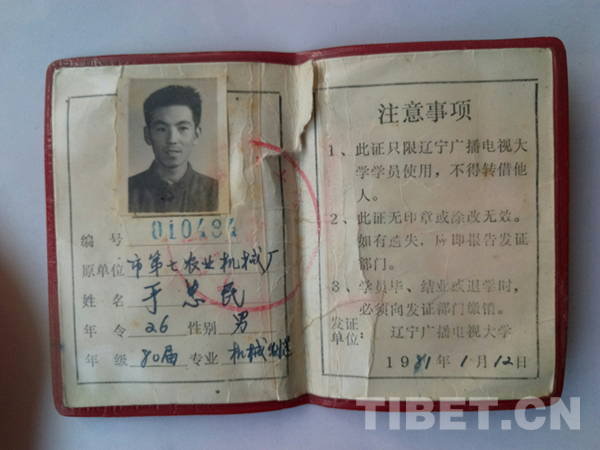 010494
编号
原单位 市第七农业机械厂
姓名 于惠民
年令 26 性别 男
年级 80届 专业 机械制造
注意事项
1、此证只限辽宁广播电视大
学学员使用，不得转借他
人。
2、此证无印章或涂改无效。
如有遗失，应即报告发证
部门。
3、学员毕、结业或退学时，
必须向发证部门缴销。
发证
单位：辽宁广播电视大学
1981年1月12日
TIBET.CN